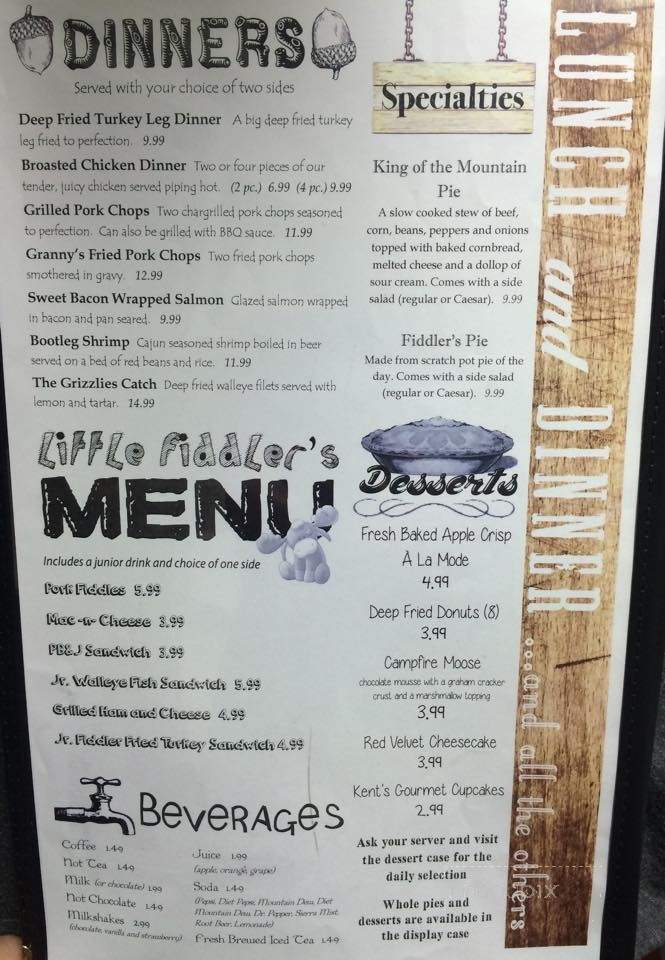 DINNERS
Served with your choice of two sides
Deep Fried Turkey Leg Dinner A big deep fried turkey
leg fried to perfection. 9.99
Broasted Chicken Dinner Two or four pieces of our
tender, juicy chicken served piping hot. (2 pc.) 6.99 (4 pc.) 9.99
Grilled Pork Chops Two chargrilled pork chops seasoned
to perfection. Can also be grilled with BBQ sauce. 11.99
Granny's Fried Pork Chops Two fried pork chops
smothered in gravy. 12.99
Sweet Bacon Wrapped Salmon Glazed salmon wrapped
in bacon and pan seared. 9.99
Bootleg Shrimp Cajun seasoned shrimp boiled in beer
served on a bed of red beans and rice. 11.99
The Grizzlies Catch Deep fried walleye filets served with
lemon and tartar. 14.99
Little Fiddler's
MENU
Includes a junior drink and choice of one side
Pork Fiddles 5.99
Mac-n-Cheese 3.99
PB&J Sandwich 3.99
Jr. Walleye Fish Sandwich 5.99
Grilled Ham and Cheese 4.99
Jr. Fiddler Fried Turkey Sandwich 4.99
Beverages
Coffee 1.49
Hot Tea 1.49
Milk (or chocolate) 1.99
Hot Chocolate 1.49
Milkshakes 2.99
(chocolate, vanilla and strawberry)
Juice 1.99
(apple, orange, grape)
Soda 1.49
(Pepsi, Diet Pepsi, Mountain Dew, Diet
Mountain Dew, Dr. Pepper, Sierra Mist,
Root Beer, Lemonade)
Fresh Brewed Iced Tea 1.49
Specialties
King of the Mountain
Pie
A slow cooked stew of beef,
corn, beans, peppers and onions
topped with baked cornbread,
melted cheese and a dollop of
sour cream. Comes with a side
salad (regular or Caesar). 9.99
Fiddler's Pie
Made from scratch pot pie of the
day. Comes with a side salad
(regular or Caesar). 9.99
Desserts
Fresh Baked Apple Crisp
À La Mode
4.99
Deep Fried Donuts (8)
3.99
Campfire Moose
chocolate mousse with a graham cracker
crust and a marshmallow topping
3.99
Red Velvet Cheesecake
3.99
Kent's Gourmet Cupcakes
2.99
Ask your server and visit
the dessert case for the
daily selection
Whole pies and
desserts are available in
the display case
LUNCH and DINNER
...and all the others